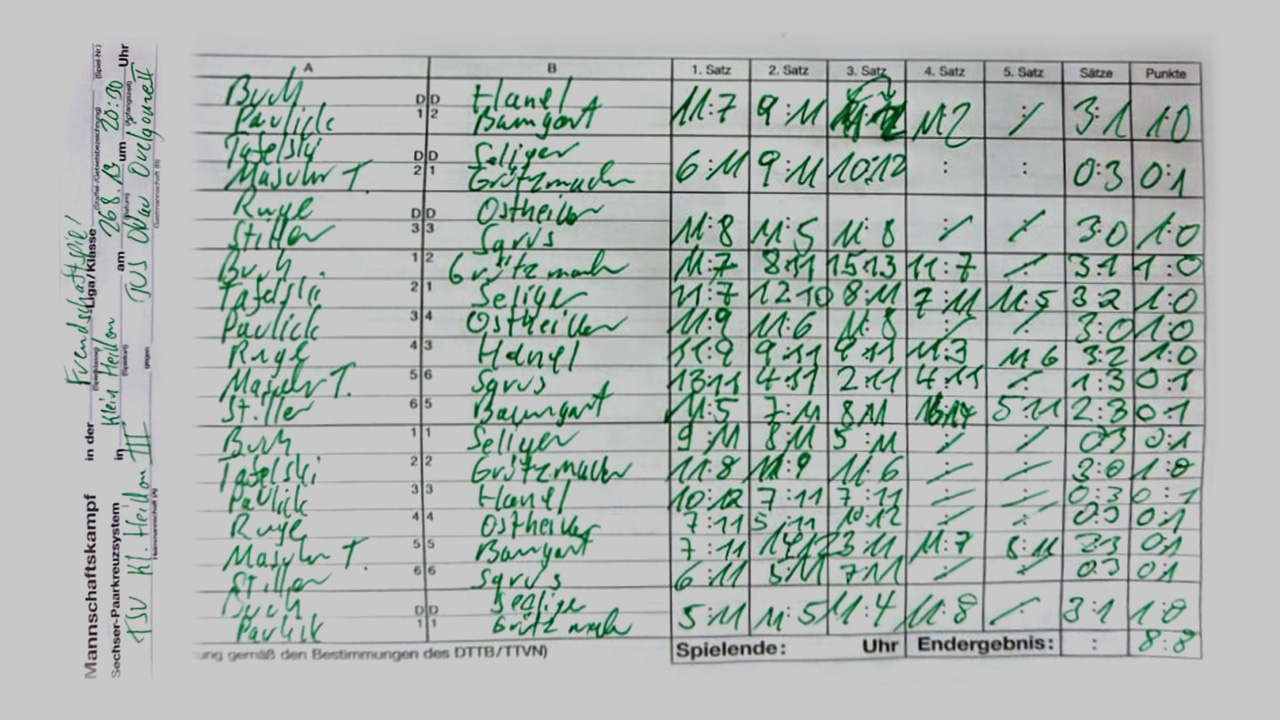 Mannschaftskampf in der Freundschaftsspiel Liga/Klasse
(Spielklasse) (Staffel-/Gebietsbezeichnung) (Spiel-Nr.)
Sechser-Paarkreuzsystem in Klein Heilon am 26.8.13 um 20:30 Uhr
(Spielort) (Datum) (Anfangszeit)
TSV Kl. Heilon III gegen TUS Oldau Ovelgönne II
(Heimmannschaft (A)) (Gastmannschaft (B))
A B 1. Satz 2. Satz 3. Satz 4. Satz 5. Satz Sätze Punkte
Buch D D Hanel
Paulick 1 2 Bamgart 11:7 9:11 11:2 ⁒ 3:1 1:0
Tafelski D D Seliger
Masuhr T. 2 1 Grützmacher 6:11 9:11 10:12 : : 0:3 0:1
Ruge D D Ostheiller
Stiller 3 3 Sarus 11:8 11:5 11:8 ⁒ ⁒ 3:0 1:0
Buch 1 2 Grützmach 11:7 8:11 15:13 11:7 ⁒ 3:1 1:0
Tafelski 2 1 Seliger 11:7 12:10 8:11 7:11 11:5 3:2 1:0
Paulick 3 4 Ostheiller 11:9 11:6 11:8 ⁒ ⁒ 3:0 1:0
Ruge 4 3 Hanel 11:9 9:11 9:11 11:3 11:6 3:2 1:0
Masuhr T. 5 6 Sarus 13:11 4:11 2:11 4:11 ⁒ 1:3 0:1
Stiller 6 5 Baumgart 11:5 7:11 8:11 16:14 5:11 2:3 0:1
Buch 1 1 Seliger 9:11 8:11 5:11 ⁒ ⁒ 0:3 0:1
Tafelski 2 2 Grützmacher 11:8 11:9 11:6 ⁒ ⁒ 3:0 1:0
Paulick 3 3 Hanel 10:12 7:11 7:11 ⁒ ⁒ 0:3 0:1
Ruge 4 4 Ostheiller 7:11 5:11 10:12 ⁒ ⁒ 0:3 0:1
Masuhr T. 5 5 Bamgart 7:11 14:12 3:11 11:7 8:11 2:3 0:1
Stiller 6 6 Sarus 6:11 5:11 7:11 ⁒ ⁒ 0:3 0:1
Buch D D Seelige
Paulik 1 1 Grützmach 5:11 11:5 11:4 11:8 ⁒ 3:1 1:0
ung gemäß den Bestimmungen des DTTB/TTVN) Spielende: Uhr Endergebnis: : 8:8